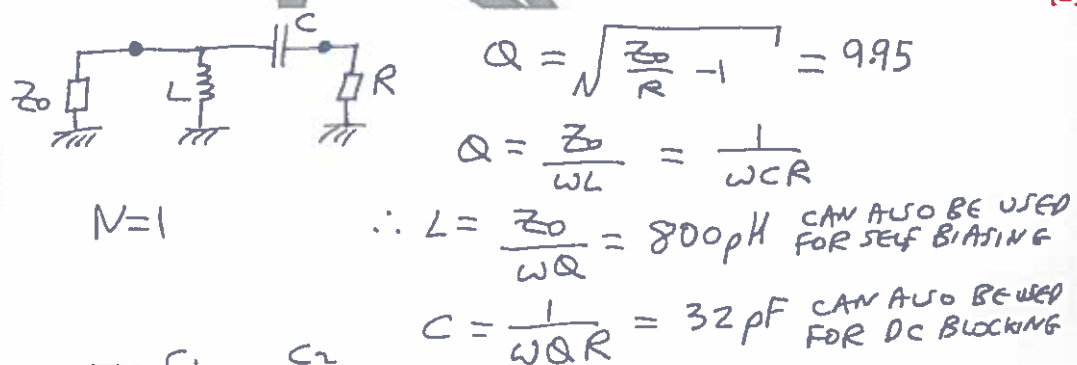 C
Z₀ L R
Q = √(Z₀/R − 1) = 9.95
Q = Z₀/ωL = 1/ωCR
N=1 ∴ L = Z₀/ωQ = 800pH CAN ALSO BE USED FOR SELF BIASING
C = 1/ωQR = 32pF CAN ALSO BE USED FOR DC BLOCKING
C₂